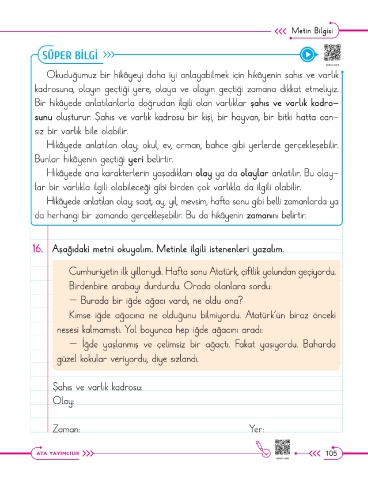 Metin Bilgisi
SÜPER BİLGİ
Okuduğumuz bir hikâyeyi daha iyi anlayabilmek için hikâyenin şahıs ve varlık
kadrosuna, olayın geçtiği yere, olaya ve olayın geçtiği zamana dikkat etmeliyiz.
Bir hikâyede anlatılanlarla doğrudan ilgili olan varlıklar şahıs ve varlık kadro-
sunu oluşturur. Şahıs ve varlık kadrosu bir kişi, bir hayvan, bir bitki hatta can-
sız bir varlık bile olabilir.
Hikâyede anlatılan olay; okul, ev, orman, bahçe gibi yerlerde gerçekleşebilir.
Bunlar hikâyenin geçtiği yeri belirtir.
Hikâyede ana karakterlerin yaşadıkları olay ya da olaylar anlatılır. Bu olay-
lar bir varlıkla ilgili olabileceği gibi birden çok varlıkla da ilgili olabilir.
Hikâyede anlatılan olay; saat, ay, yıl, mevsim, hafta sonu gibi belli zamanlarda ya
da herhangi bir zamanda gerçekleşebilir. Bu da hikâyenin zamanını belirtir.
16. Aşağıdaki metni okuyalım. Metinle ilgili istenenleri yazalım.
Cumhuriyetin ilk yıllarıydı. Hafta sonu Atatürk, çiftlik yolundan geçiyordu.
Birdenbire arabayı durdurdu. Orada olanlara sordu:
— Burada bir iğde ağacı vardı, ne oldu ona?
Kimse iğde ağacına ne olduğunu bilmiyordu. Atatürk'ün biraz önceki
neşesi kalmamıştı. Yol boyunca hep iğde ağacını aradı:
— İğde yaşlanmış ve çelimsiz bir ağaçtı. Fakat yaşıyordu. Baharda
güzel kokular veriyordu, diye sızlandı.
Şahıs ve varlık kadrosu:
Olay:
Zaman: Yer:
ATA YAYINCILIK
105